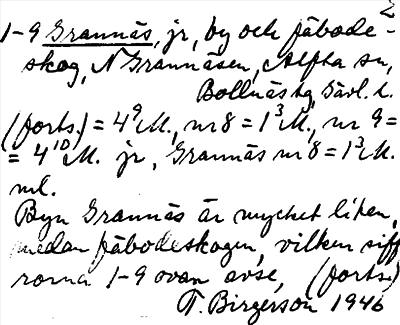 2
1-9 Grannäs, jr, by och fäbode-
skog, N Grannäsen, Alfta sn,
Bollnäs tg, Gävl. l.
(forts.) = 4⁹ M., nr 8 = 1³ M., nr 9 =
= 4¹⁰ M. jr, Grannäs nr 8 = 1³ M.
ml.
Byn Grannäs är mycket liten,
medan fäbodeskogen, vilken siff
rorna 1-9 ovan avse, (forts.)
T. Birgerson 1946